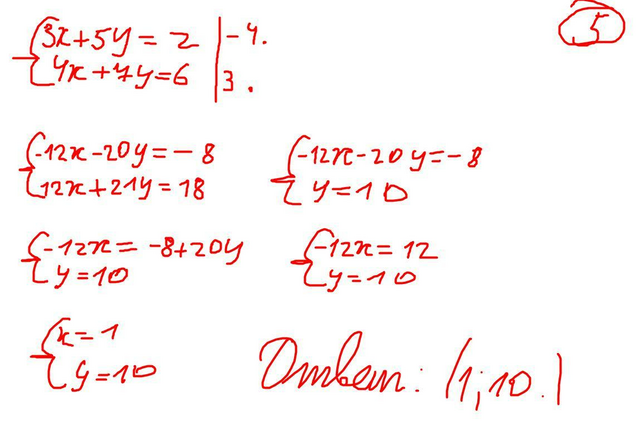 5
{3x+5y=2 |-4.
{4x+7y=6 |3.
{-12x-20y=-8
{12x+21y=18
{-12x-20y=-8
{y=10
{-12x=-8+20y
{y=10
{-12x=12
{y=10
{x=1
{y=10
Ответ: (1;10.)